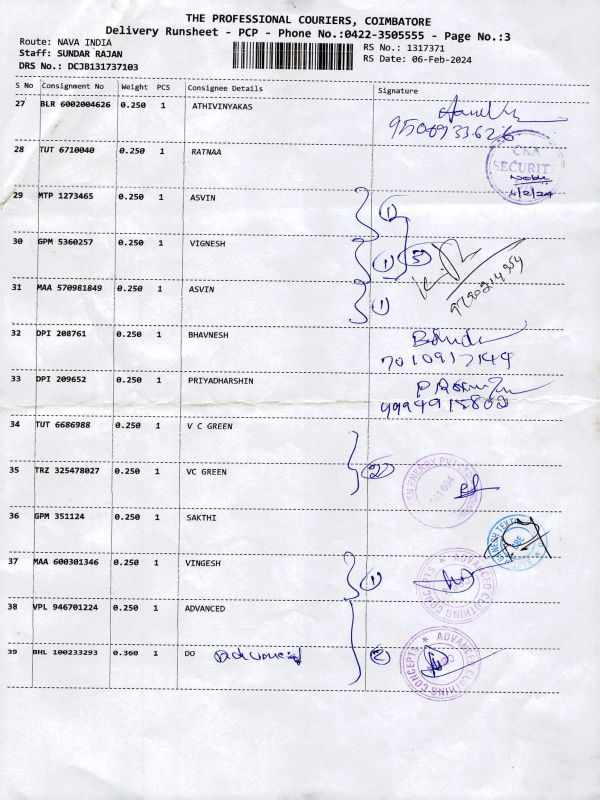 THE PROFESSIONAL COURIERS, COIMBATORE
Delivery Runsheet - PCP - Phone No.:0422-3505555 - Page No.:3
Route: NAVA INDIA
Staff: SUNDAR RAJAN
DRS No.: DCJB131737103
RS No.: 1317371
RS Date: 06-Feb-2024
S No Consignment No Weight PCS Consignee Details Signature
27 BLR 6002004626 0.250 1 ATHIVINYAKAS
9500933626
28 TUT 6710040 0.250 1 RATNAA
SECURITY
6/2/24
29 MTP 1273465 0.250 1 ASVIN 1
30 GPM 5360257 0.250 1 VIGNESH 1 3
31 MAA 570981849 0.250 1 ASVIN 1
32 DPI 208761 0.250 1 BHAVNESH
7010917144
33 DPI 209652 0.250 1 PRIYADHARSHIN
9994915802
34 TUT 6686988 0.250 1 V C GREEN
35 TRZ 325478027 0.250 1 VC GREEN 2
36 GPM 351124 0.250 1 SAKTHI
37 MAA 600301346 0.250 1 VINGESH 1
ADVANCED CLOTHING CONCEPTS
38 VPL 946701224 0.250 1 ADVANCED
39 BHL 100233293 0.360 1 DO Advanced 2
ADVANCED CLOTHING CONCEPTS